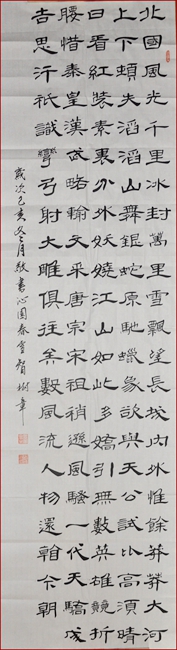 北國風光千里冰封萬里雪飄望長城內外惟餘莽莽大河
上下頓失滔滔山舞銀蛇原馳蠟象欲與天公試比高須晴
日看紅裝素裹分外妖嬈江山如此多嬌引無數英雄競折
腰惜秦皇漢武略輸文采唐宗宋祖稍遜風騷一代天驕成
吉思汗祇識彎弓射大雕俱往矣數風流人物還看今朝
歲次己亥冬月敬書沁園春雪賀樹章